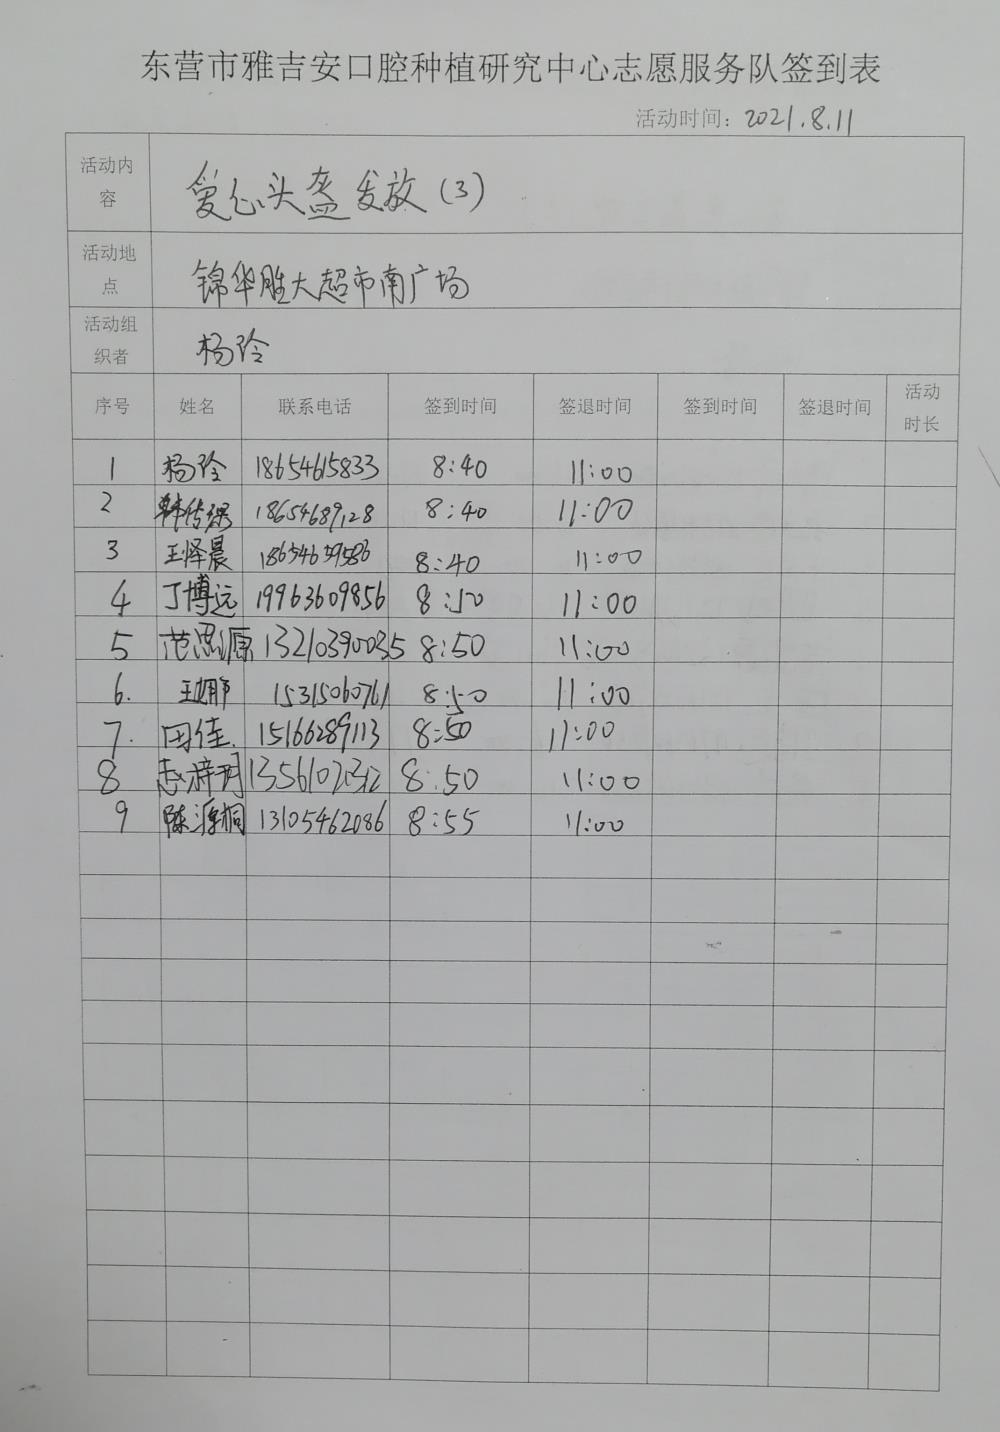 东营市雅吉安口腔种植研究中心志愿服务队签到表
活动时间：2021.8.11
活动内容 爱心头盔发放(3)
活动地点 锦华胜大超市南广场
活动组织者 杨玲
序号 姓名 联系电话 签到时间 签退时间 签到时间 签退时间 活动时长
1 杨玲 18654615833 8:40 11:00
2 韩传 18654689128 8:40 11:00
3 王怿晨 18654659586 8:40 11:00
4 丁博远 19963609856 8:50 11:00
5 范思源 13210390035 8:50 11:00
6. 15315060761 8:50 11:00
7. 田佳. 15166289113 8:50 11:00
8 8:50 11:00
9 陈源桐 13105462086 8:55 11:00